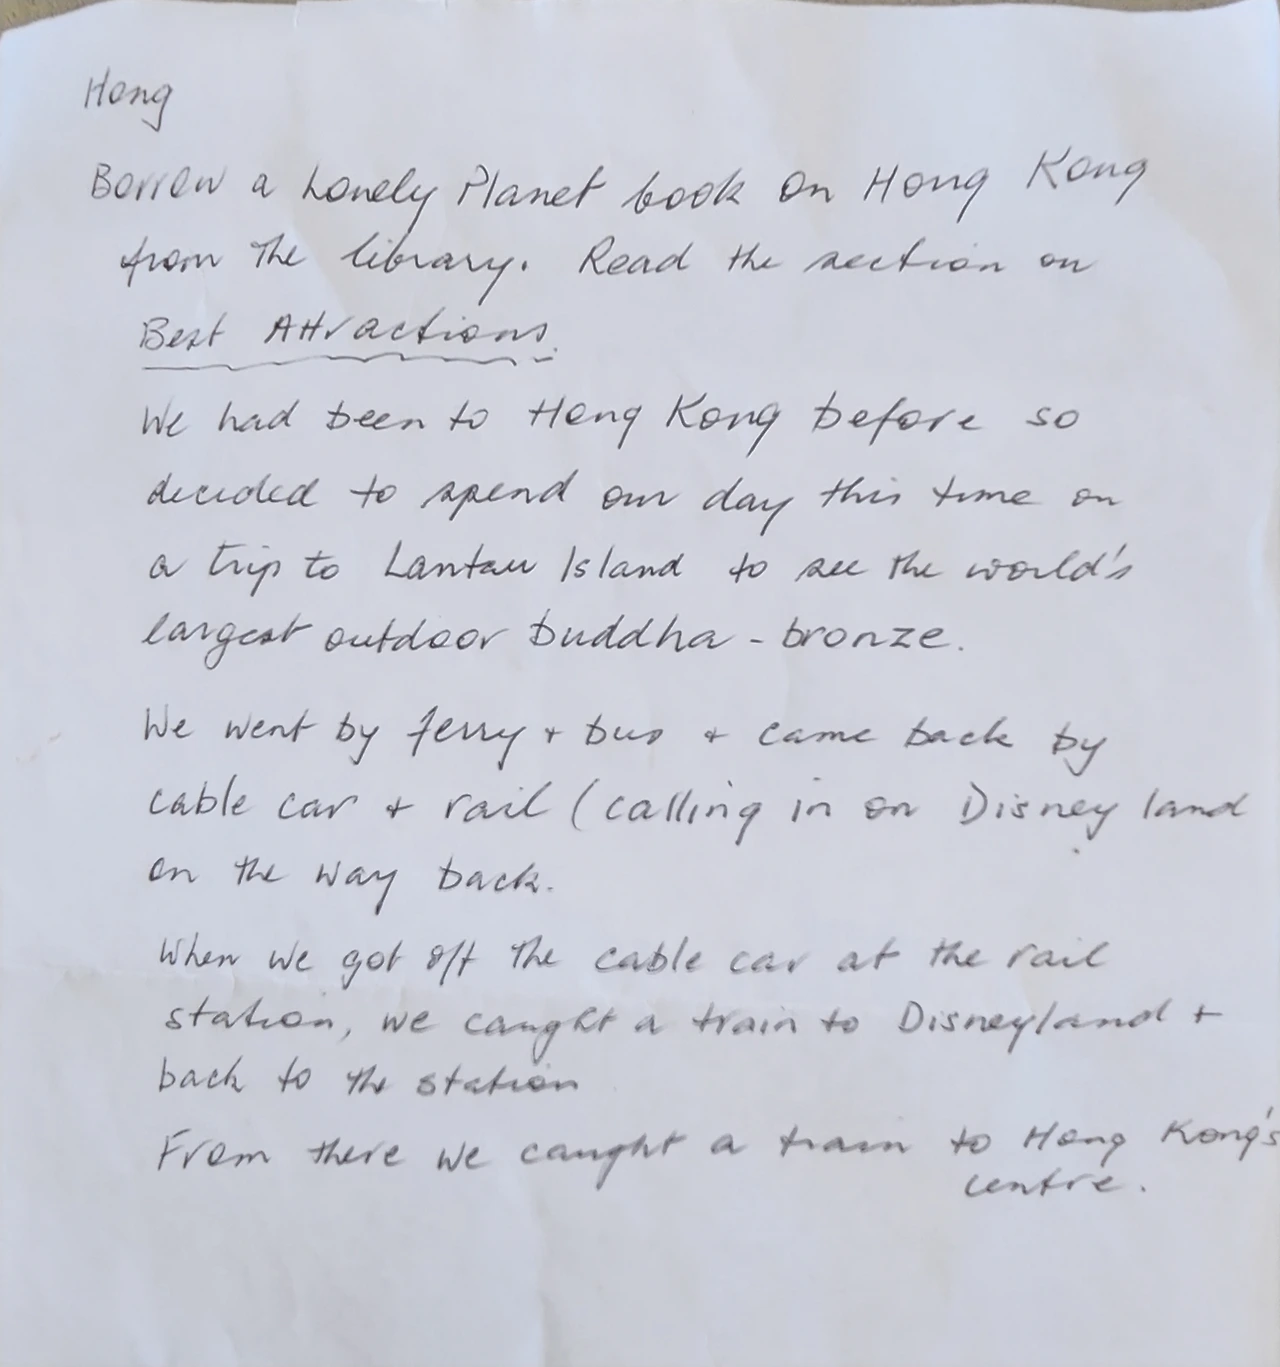 Hong
Borrow a Lonely Planet book on Hong Kong
from the library. Read the section on
Best Attractions.
We had been to Hong Kong before so
decided to spend our day this time on
a trip to Lantau Island to see the world's
largest outdoor buddha - bronze.
We went by ferry + bus + came back by
cable car + rail (calling in on Disney land
on the way back.
When we got off the cable car at the rail
station, we caught a train to Disneyland +
back to the station
From there we caught a train to Hong Kong's
centre.